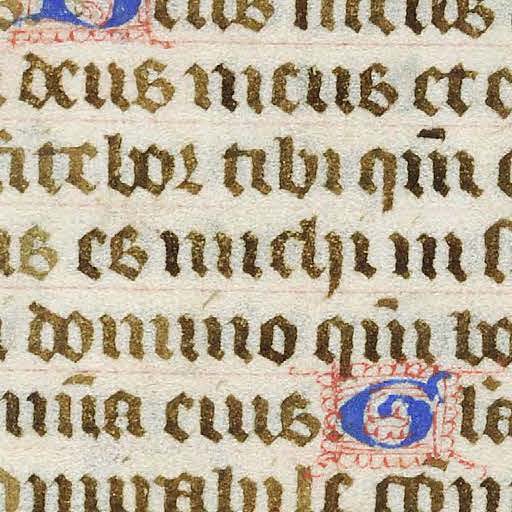 Deus meus
deus meus et
fitebor tibi qm̄
es michi in
domino qm̄ bo
mīa eius. G